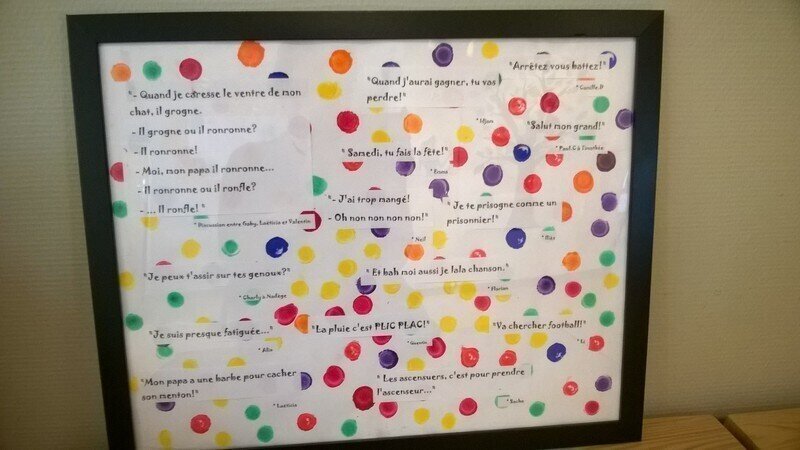 "- Quand je caresse le ventre de mon
chat, il grogne.
- Il grogne ou il ronronne?
- Il ronronne!
- Moi, mon papa il ronronne...
- Il ronronne ou il ronfle?
- ... Il ronfle! "
* Discussion entre Gaby, Laëticia et Valentin
"Quand j'aurai gagner, tu vas
perdre!"
* Idjam
"Arrêtez vous battez!"
* Camille.D
"Salut mon grand!"
* Paul.C à Timothée
"Samedi, tu fais la fête!"
* Emma
"- J'ai trop mangé!
- Oh non non non non!"
* Neil
" Je te prisogne comme un
prisonnier!"
"Je peux t'assir sur tes genoux?"
* Charly à Nadège
" Et bah moi aussi je lala chanson."
* Florian
"Je suis presque fatiguée..."
"La pluie c'est PLIC PLAC!"
* Quentin
"Va chercher football!"
"Mon papa a une barbe pour cacher
son menton!"
* Laëticia
" Les ascensuers, c'est pour prendre
l'ascenseur..."
* Sacha